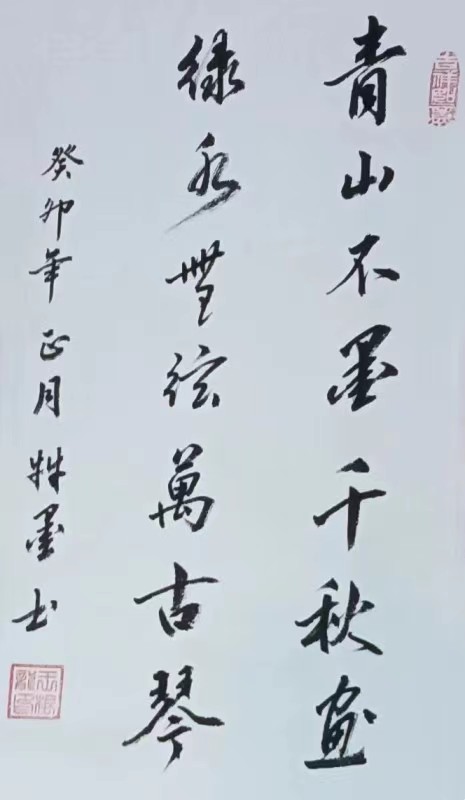 青山不墨千秋画
绿水無弦萬古琴
癸卯年正月 墨书